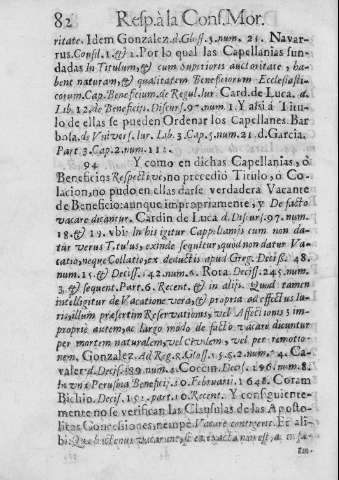 82 Resp. à la Cons. Mor.
ritate. Idem Gonzalez. d. Gloss. 5. num. 21. Navar-
rus. Consil. 1. & 2. Por lo qual las Capellanias fun-
dadas In Titulum, & cum Supriores auctoritate, ha-
bent naturam, & qualitatem Beneficiorum Ecclesiasti-
corum. Cap. Beneficium de Regul. Iur. Card. de Luca. d.
Lib. 12. de Beneficijs. Discurs. 97. num. 1. Y assi à Titu-
lo de ellas se pueden Ordenar los Capellanes. Bar
bosa. de Vnivers. Iur. Lib. 3. Cap. 5. num. 21. d. Garcia.
Part. 3. Cap. 2. num. 112.
94 Y como en dichas Capellanias, ò
Beneficios Respective, no precediò Titulo, ò Co-
lacion, no pudo en ellas darse verdadera Vacante
de Beneficio: aunque impropriamente, y De facto
vacare dicantur. Cardin de Luca d. Discurs. 97. num.
18. & 19. vbi: In his igitur Cappellanijs cum non da-
tur verus Titulus, exinde sequitur, quod non datur Va-
catio, neque Collatio, ex deductis apud Greg. Deciss. 48.
num. 15. & Deciss. 142. num. 6. Rota. Deciss. 245. num.
3. & sequent. Part. 6. Recent. & in alijs. Quod tamen
intelligitur de Vacatione vera, & propria ad effectus Iu-
ris, illum præsertim Reservationis, vel Affectionis;
improprio autem, ac largo modo de facto vacare dicuntur
per mortem naturalem, vel civilem, vel per remotio-
nem. Gonzalez. Ad Reg. 8. Gloss. 15. §. 2. num. 4. Ca-
valer. d. Deciss. 89. num. 4. Coccin. Deciss. 196. num. 8.
In vna Perusina Beneficij. 10. Februarii. 1648. Coram
Bichio. Deciss. 151. part. 10. Recent. Y consiguiente-
mente no se verifican las Clausulas de las Aposto-
licas Concessiones, nempè Vacare contigerit. Et ali-
bi: Quæ hactenus vacarunt, se